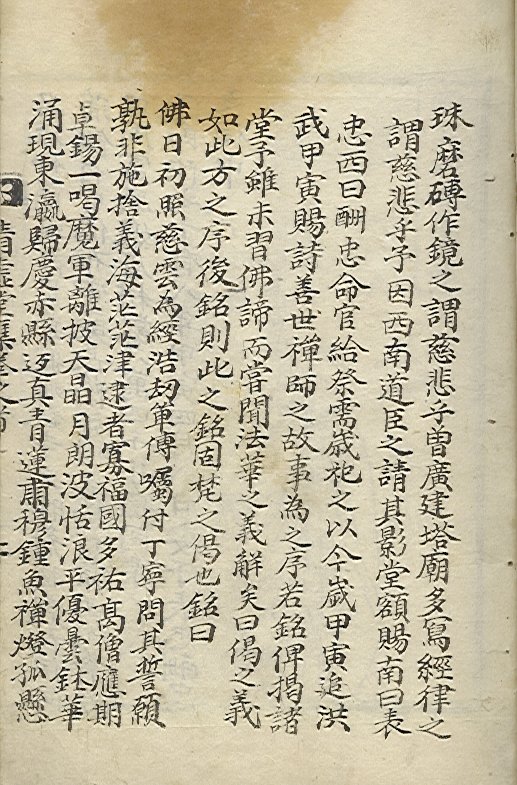 珠磨磚作鏡之謂慈悲乎曾廣建塔廟多寫經律之
謂慈悲乎予因西南道臣之請其影堂額賜南曰表
忠西曰酬忠命官給祭需歲祀之以今歲甲寅追洪
武甲寅賜詩善世禪師之故事為之序若銘俾揭諸
堂予雖未習佛諦而嘗聞法華之義解矣曰偈之義
如此方之序後銘則此之銘固梵之偈也銘曰
佛日初照慈雲為經浩刼單傳囑付丁寧問其誓願
孰非施捨義海茫茫津逮者寡福國多祐髙僧應期
卓錫一喝魔軍離披天晶月朗波恬浪平優曇鉢華
涌現東瀛歸慶赤縣返真青蓮肅穆鍾魚禪燈孤懸
清虛堂集